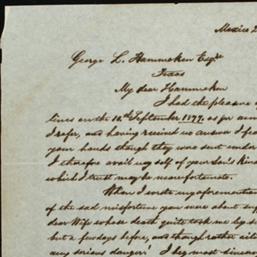 Mexico 2
George L. Hammeken Esqr.
Texas
My dear Hammeken
I had the pleasure o
lines on the 12th September 1877, as per
I refer, and having received no answer I fea
your hands though they were sent under
I therefore avail myself of your Son's kind
which I trust may be more fortunate.
When I wrote my aforemention
of the sad misfortune you were about
dear Wife whose death quite took me by
but a few days before, and though rather
any serious danger. I beg most sincer